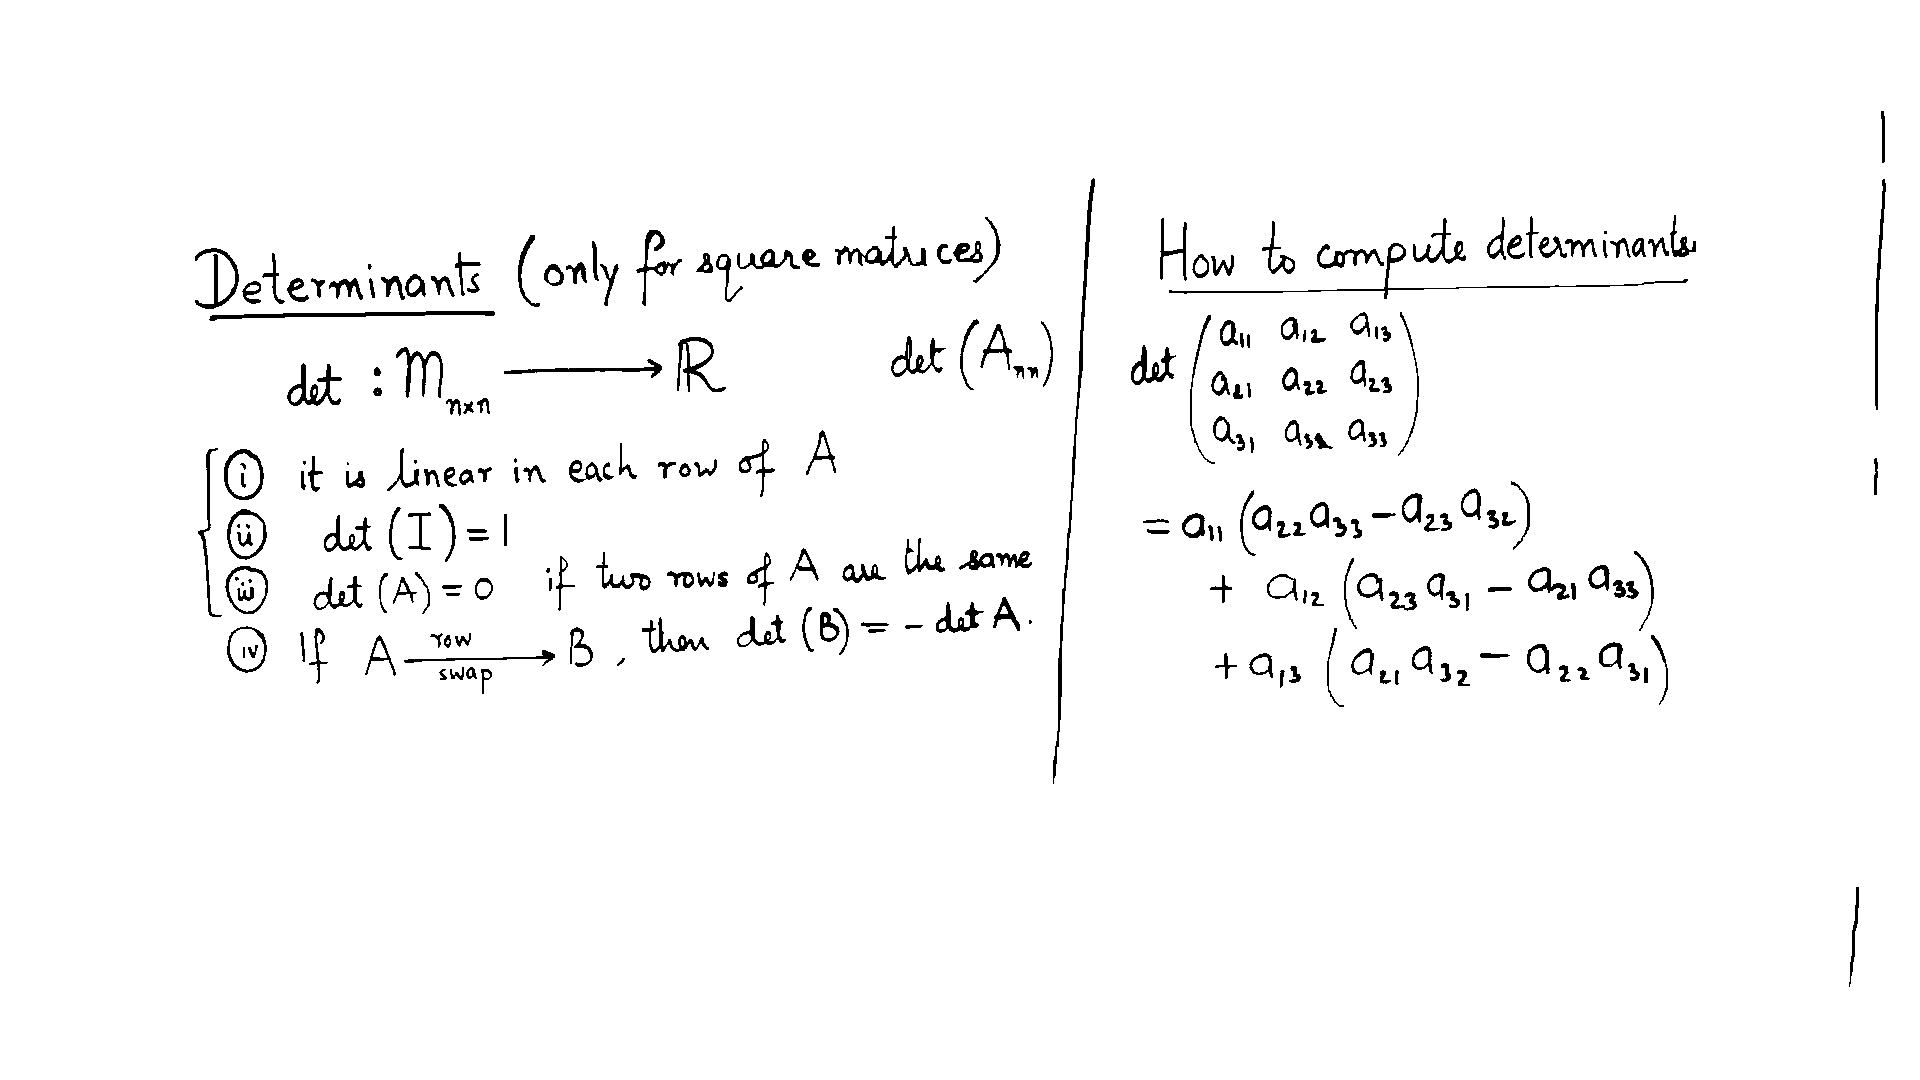 Determinants (only for square matrices)
det : M_{n×n} ⟶ ℝ    det (A_{nn})
(i) it is linear in each row of A
(ii) det (I) = 1
(iii) det (A) = 0 if two rows of A are the same
(iv) If A —row swap→ B, then det (B) = - det A.
How to compute determinants
det ( a₁₁ a₁₂ a₁₃
a₂₁ a₂₂ a₂₃
a₃₁ a₃₂ a₃₃ )
= a₁₁ (a₂₂ a₃₃ - a₂₃ a₃₂)
+ a₁₂ (a₂₃ a₃₁ - a₂₁ a₃₃)
+ a₁₃ (a₂₁ a₃₂ - a₂₂ a₃₁)